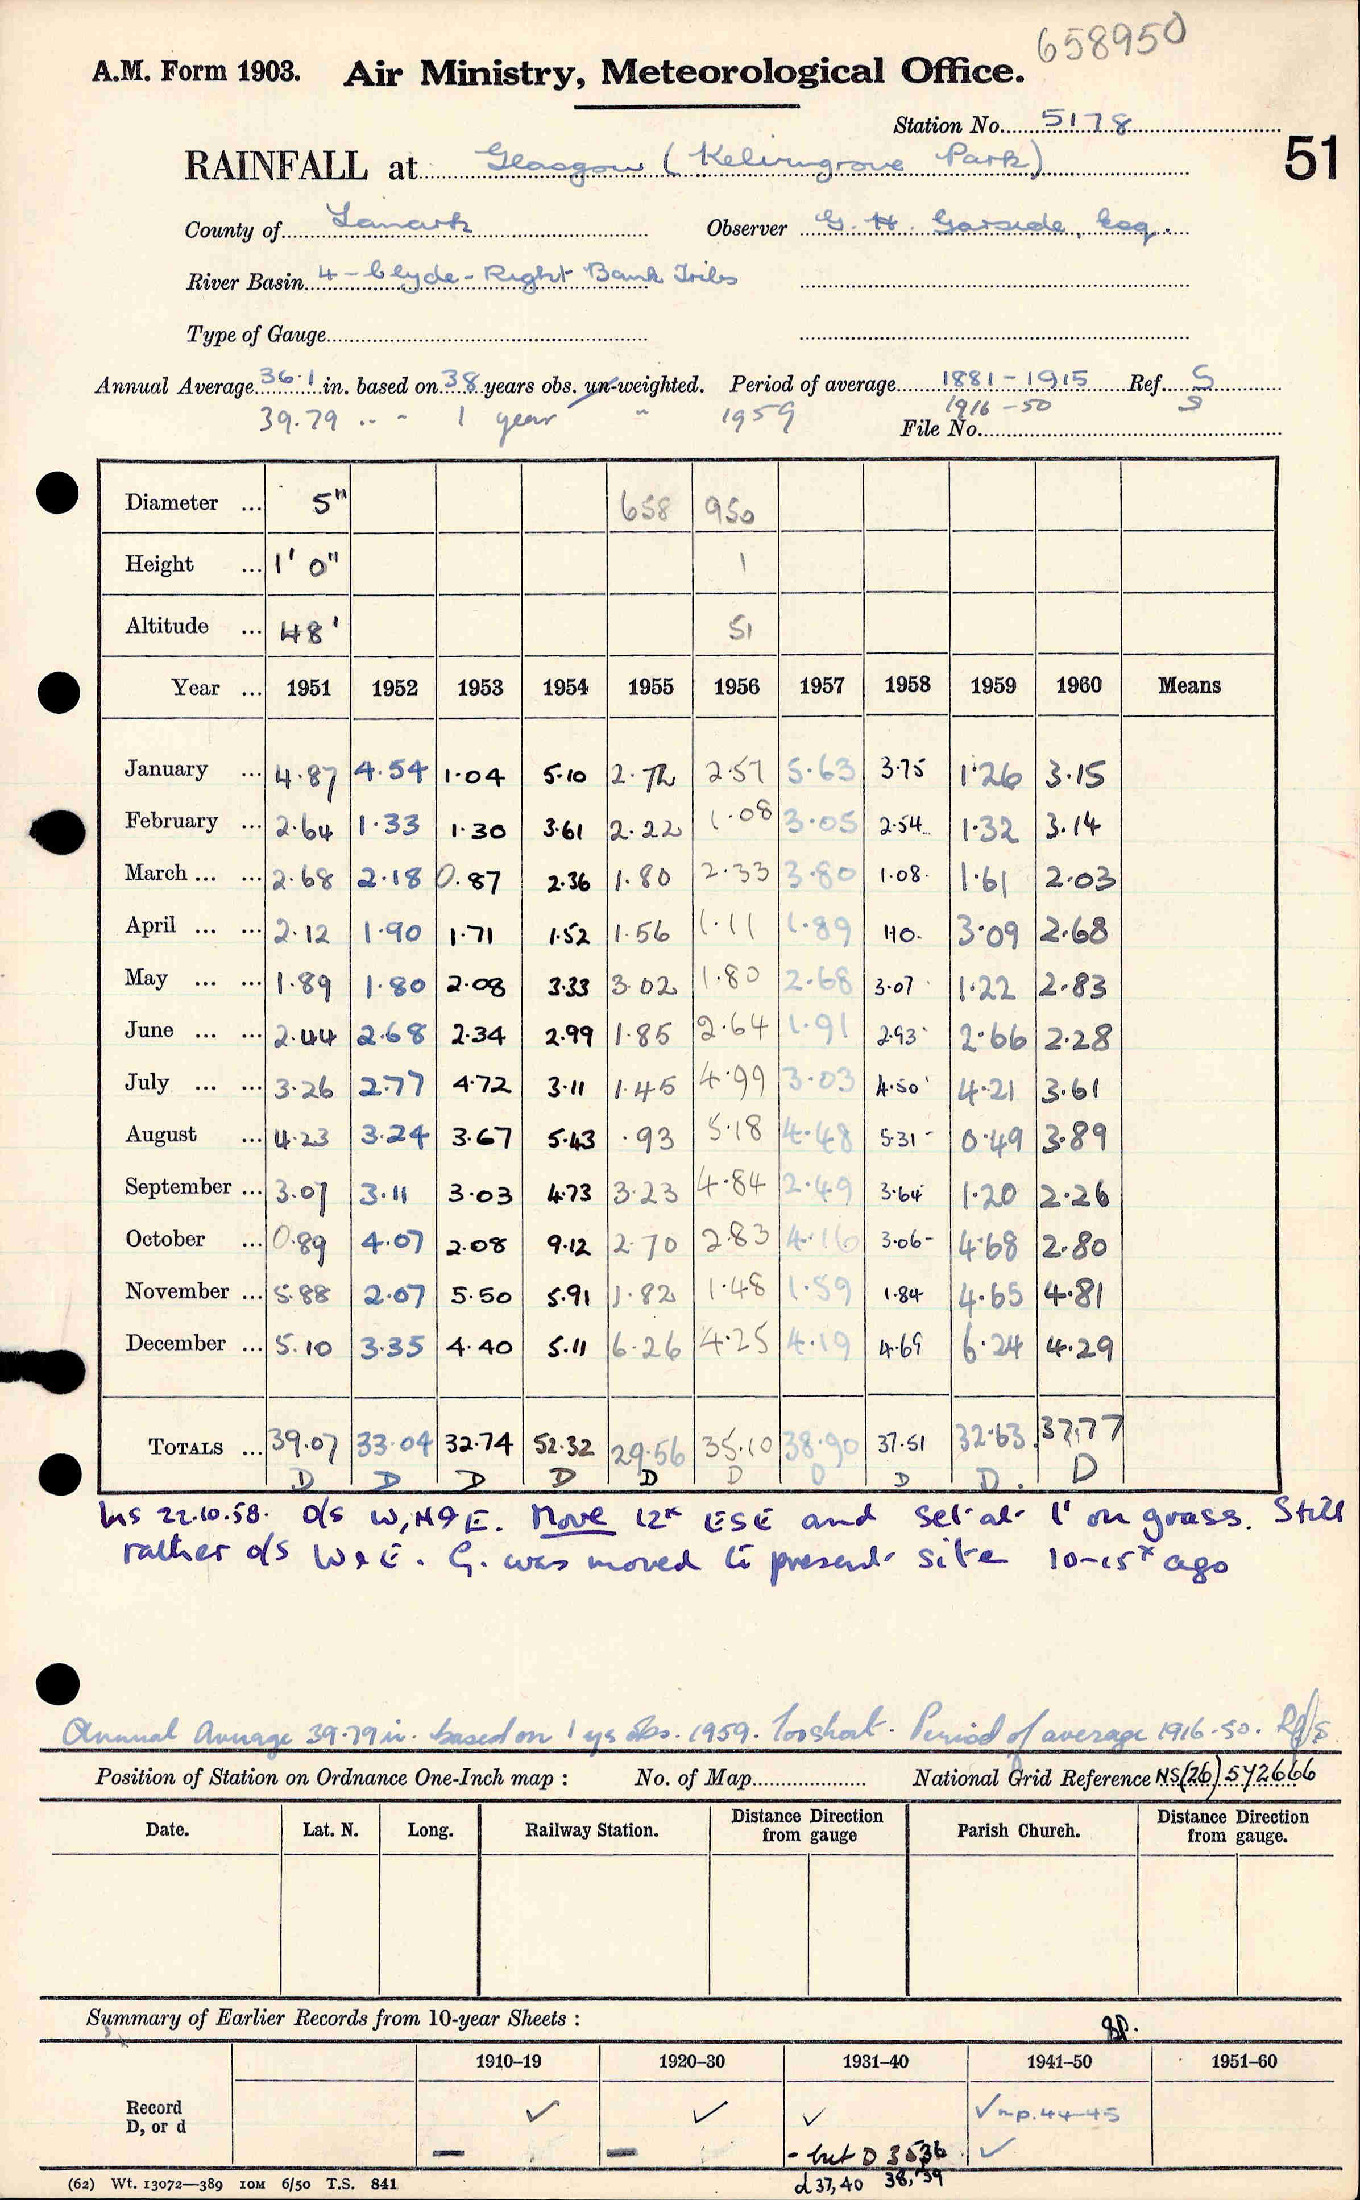 658950
A.M. Form 1903. Air Ministry, Meteorological Office.
Station No. 5178
51
RAINFALL at Glasgow (Kelvingrove Park)
County of Lanark Observer G. H. Garside, Esq.
River Basin 4 - Clyde - Right Bank Tribs
Type of Gauge
Annual Average 36.1 in. based on 38 years obs. un-weighted. Period of average 1881-1915 Ref. S
39.79 .. - 1 year " 1959 1916-50 S
File No.
Diameter ... 5" 658 950
Height ... 1' 0" 1
Altitude ... 48' 51
Year ... 1951 1952 1953 1954 1955 1956 1957 1958 1959 1960 Means
January ... 4.87 4.54 1.04 5.10 2.72 2.57 5.63 3.75 1.26 3.15
February ... 2.64 1.33 1.30 3.61 2.22 1.08 3.05 2.54 1.32 3.14
March ... ... 2.68 2.18 0.87 2.36 1.80 2.33 3.80 1.08 1.61 2.03
April ... ... 2.12 1.90 1.71 1.52 1.56 1.11 1.89 1.10 3.09 2.68
May ... ... 1.89 1.80 2.08 3.33 3.02 1.80 2.68 3.07 1.22 2.83
June ... ... 2.44 2.68 2.34 2.99 1.85 2.64 1.91 2.93 2.66 2.28
July ... ... 3.26 2.77 4.72 3.11 1.45 4.99 3.03 4.50 4.21 3.61
August ... 4.23 3.24 3.67 5.43 .93 5.18 4.48 5.31 0.49 3.89
September ... 3.07 3.11 3.03 4.73 3.23 4.84 2.49 3.64 1.20 2.26
October ... 0.89 4.07 2.08 9.12 2.70 2.83 4.16 3.06 4.68 2.80
November ... 5.88 2.07 5.50 5.91 1.82 1.48 1.59 1.84 4.65 4.81
December ... 5.10 3.35 4.40 5.11 6.26 4.25 4.19 4.69 6.24 4.29
TOTALS ... 39.07 33.04 32.74 52.32 29.56 35.10 38.90 37.51 32.63 37.77
D D D D D D D D D. D
Ins 22.10.58. O/S W, N & E. Move 12x ESE and set at 1' on grass. Still
rather o/s W & E. G. was moved to present site 10-15x ago
Annual Average 39.79 in. based on 1 yrs obs. 1959. Too short. Period of average 1916-50.
Position of Station on Ordnance One-Inch map : No. of Map National Grid Reference NS(26) 572666
Date. Lat. N. Long. Railway Station. Distance Direction from gauge Parish Church. Distance Direction from gauge.
Summary of Earlier Records from 10-year Sheets :
1910-19 1920-30 1931-40 1941-50 1951-60
Record D, or d ✓ ✓ ✓ ✓ np. 44-45
- - - but D 35,36 ✓
d 37,40 38,'39
(62) Wt. 13072—389 10M 6/50 T.S. 841